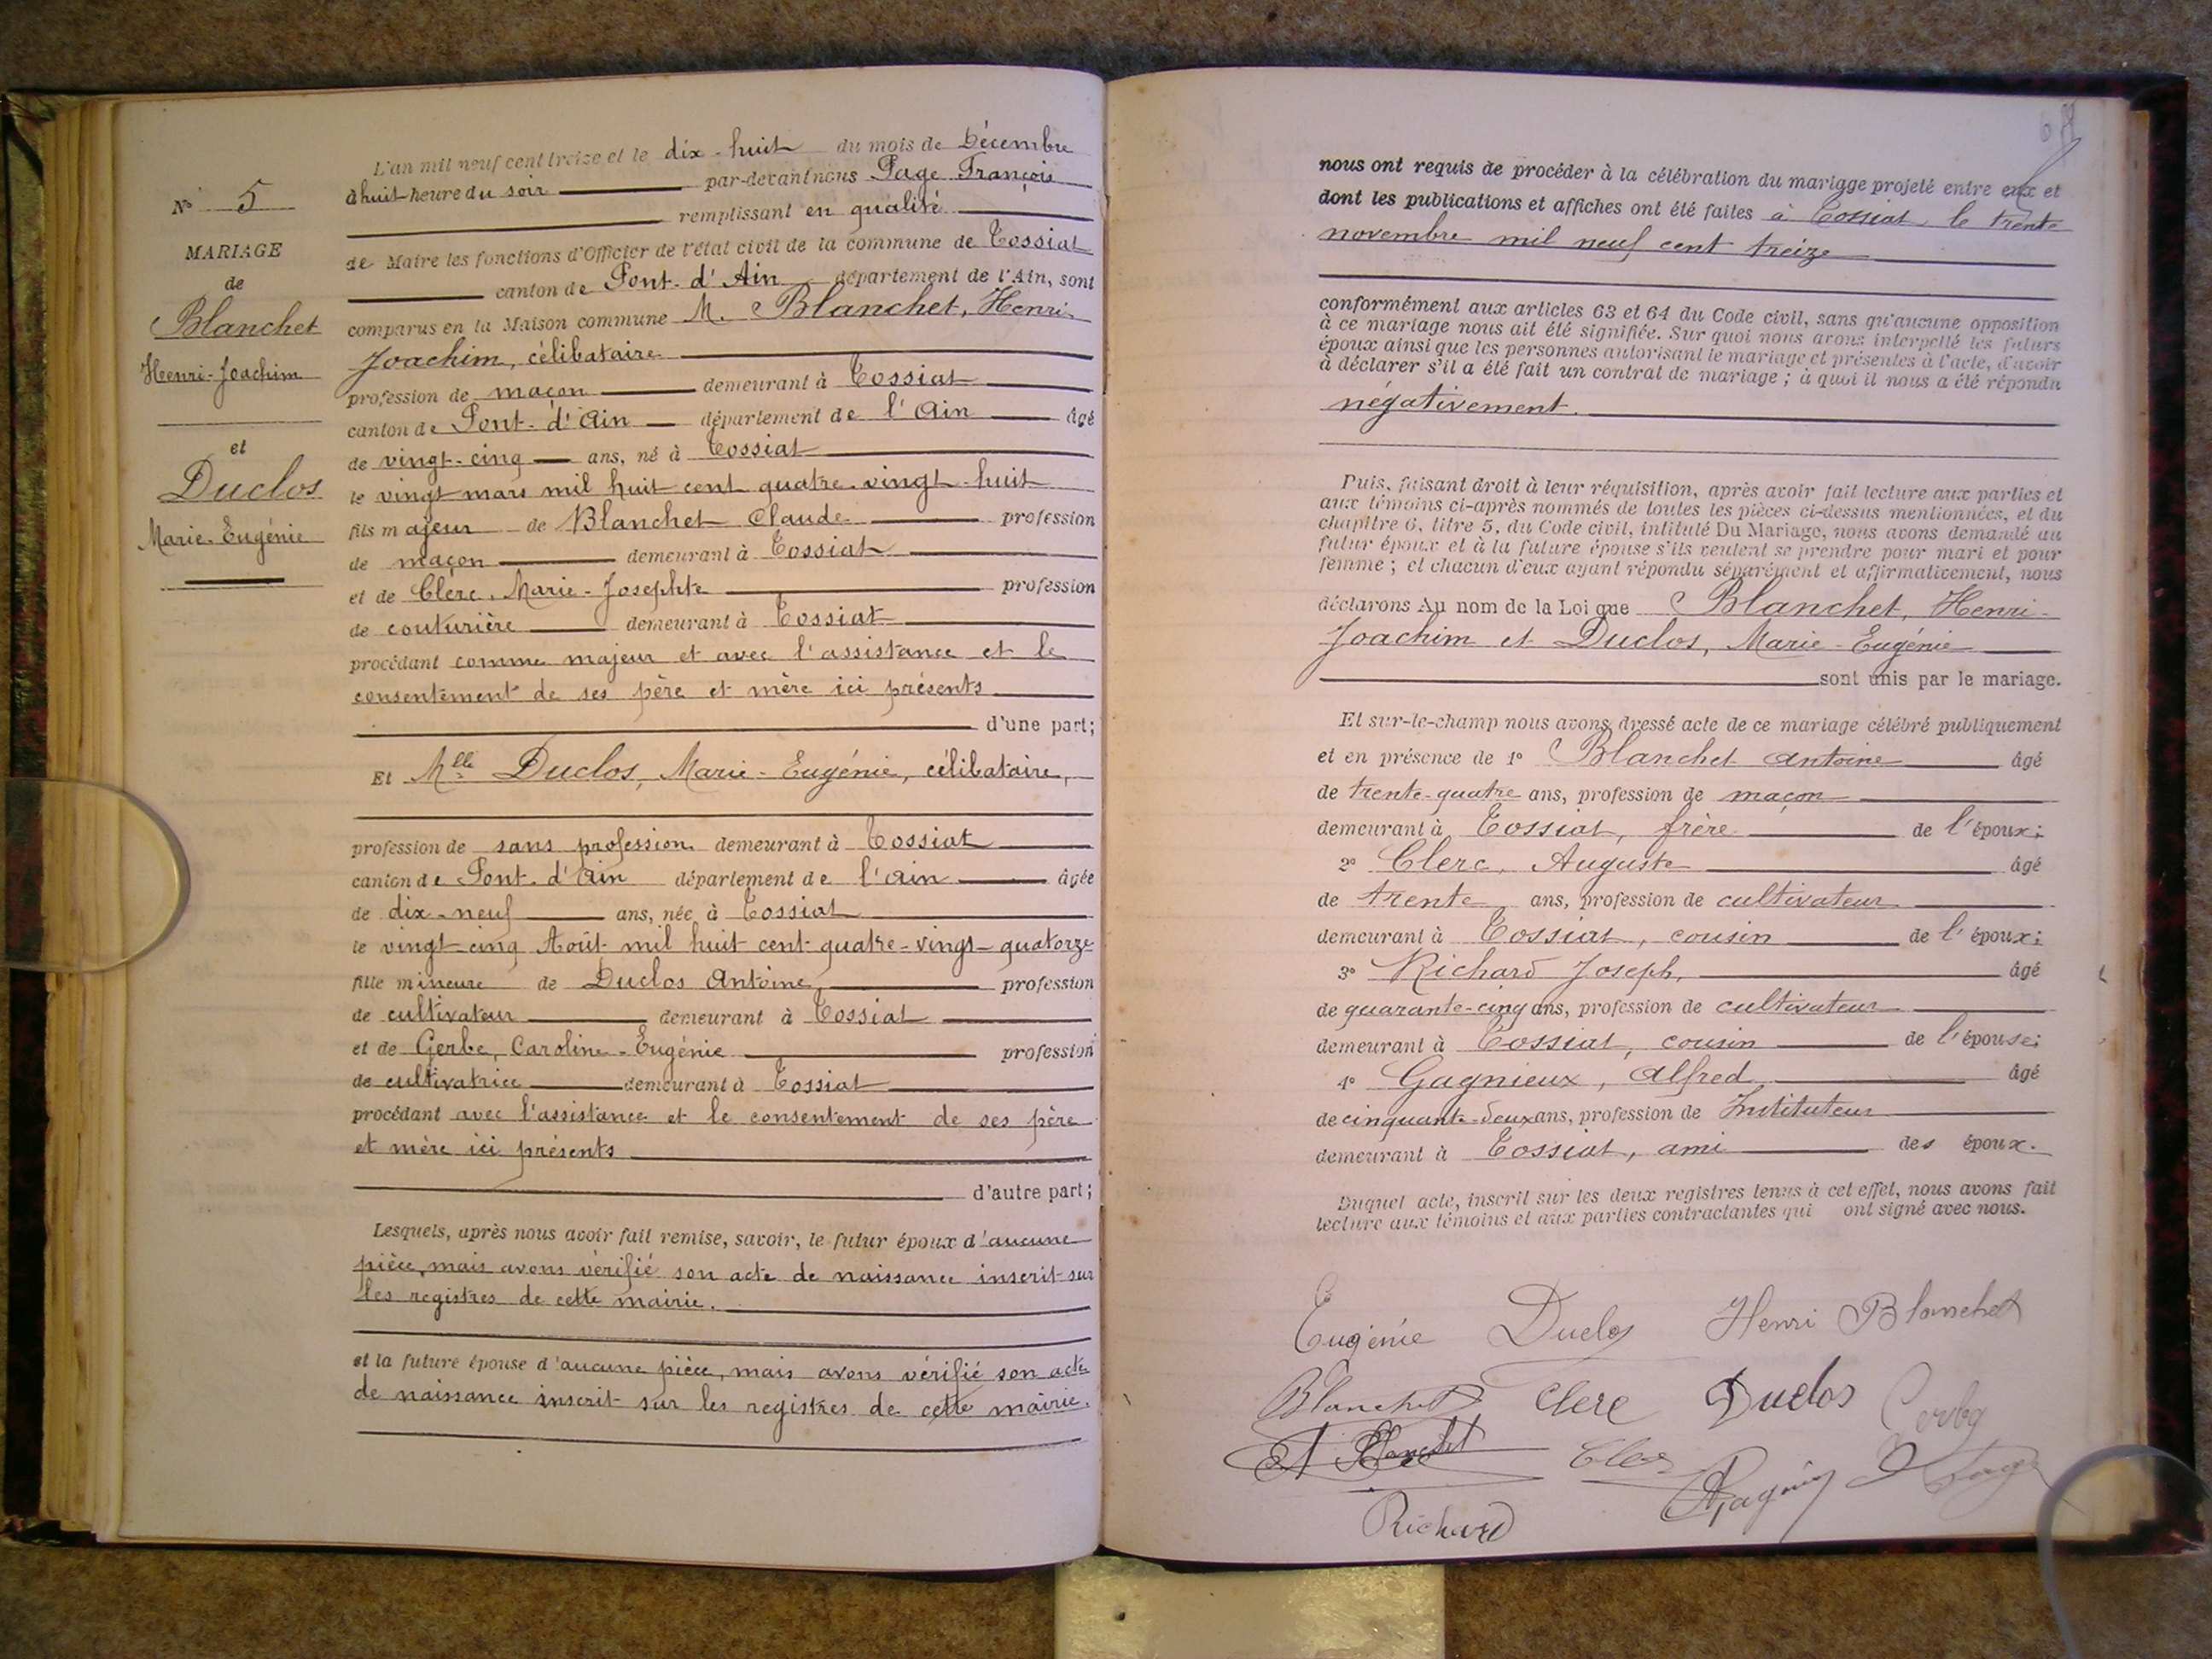 N° 5
MARIAGE
de
Blanchet
Henri-Joachim
et
Duclos
Marie-Eugénie
L'an mil neuf cent treize et le dix-huit du mois de Décembre
à huit heure du soir par-devant nous Page François
remplissant en qualité
de Maire les fonctions d'Officier de l'état civil de la commune de Tossiat
canton de Pont-d'Ain département de l'Ain, sont
comparus en la Maison commune M. Blanchet, Henri-
Joachim, célibataire
profession de maçon demeurant à Tossiat
canton de Pont-d'Ain département de l'Ain âgé
de vingt-cinq ans, né à Tossiat
le vingt mars mil huit cent quatre-vingt-huit
fils majeur de Blanchet Claude profession
de maçon demeurant à Tossiat
et de Clerc, Marie-Josephte profession
de couturière demeurant à Tossiat
procédant comme majeur et avec l'assistance et le
consentement de ses père et mère ici présents
d'une part;
Et Mlle Duclos, Marie-Eugénie, célibataire,
profession de sans profession demeurant à Tossiat
canton de Pont-d'Ain département de l'Ain âgée
de dix-neuf ans, née à Tossiat
le vingt-cinq Août mil huit cent quatre-vingt-quatorze
fille mineure de Duclos Antoine, profession
de cultivateur demeurant à Tossiat
et de Gerbe, Caroline-Eugénie profession
de cultivatrice demeurant à Tossiat
procédant avec l'assistance et le consentement de ses père
et mère ici présents
d'autre part;
Lesquels, après nous avoir fait remise, savoir, le futur époux d'aucune
pièce, mais avons vérifié son acte de naissance inscrit sur
les registres de cette mairie.
et la future épouse d'aucune pièce, mais avons vérifié son acte
de naissance inscrit sur les registres de cette mairie.
nous ont requis de procéder à la célébration du mariage projeté entre eux et
dont les publications et affiches ont été faites à Tossiat le trente
novembre mil neuf cent treize
conformément aux articles 63 et 64 du Code civil, sans qu'aucune opposition
à ce mariage nous ait été signifiée. Sur quoi nous avons interpellé les futurs
époux ainsi que les personnes autorisant le mariage et présentes à l'acte, d'avoir
à déclarer s'il a été fait un contrat de mariage; à quoi il nous a été répondu
négativement.
Puis, faisant droit à leur réquisition, après avoir fait lecture aux parties et
aux témoins ci-après nommés de toutes les pièces ci-dessus mentionnées, et du
chapitre 6, titre 5, du Code civil, intitulé Du Mariage, nous avons demandé au
futur époux et à la future épouse s'ils veulent se prendre pour mari et pour
femme; et chacun d'eux ayant répondu séparément et affirmativement, nous
déclarons Au nom de la Loi que Blanchet, Henri-
Joachim et Duclos, Marie-Eugénie
sont unis par le mariage.
Et sur-le-champ nous avons dressé acte de ce mariage célébré publiquement
et en présence de 1° Blanchet Antoine âgé
de trente-quatre ans, profession de maçon
demeurant à Tossiat, frère de l'époux;
2° Clerc, Auguste âgé
de trente ans, profession de cultivateur
demeurant à Tossiat, cousin de l'époux;
3° Richard Joseph, âgé
de quarante-cinq ans, profession de cultivateur
demeurant à Tossiat, cousin de l'épouse;
4° Gagnieux, Alfred, âgé
de cinquante-deux ans, profession de Instituteur
demeurant à Tossiat, ami des époux.
Duquel acte, inscrit sur les deux registres tenus à cet effet, nous avons fait
lecture aux témoins et aux parties contractantes qui ont signé avec nous.
Eugénie Duclos Henri Blanchet
Blanchet Clerc Duclos
A Blanchet Clerc
Richard